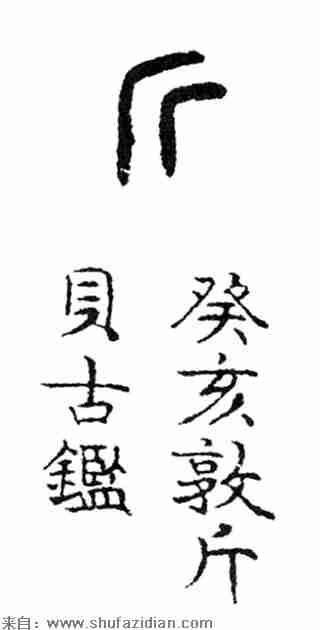 斤
癸亥敦斤
見古鑑
来自：www.shufazidian.com